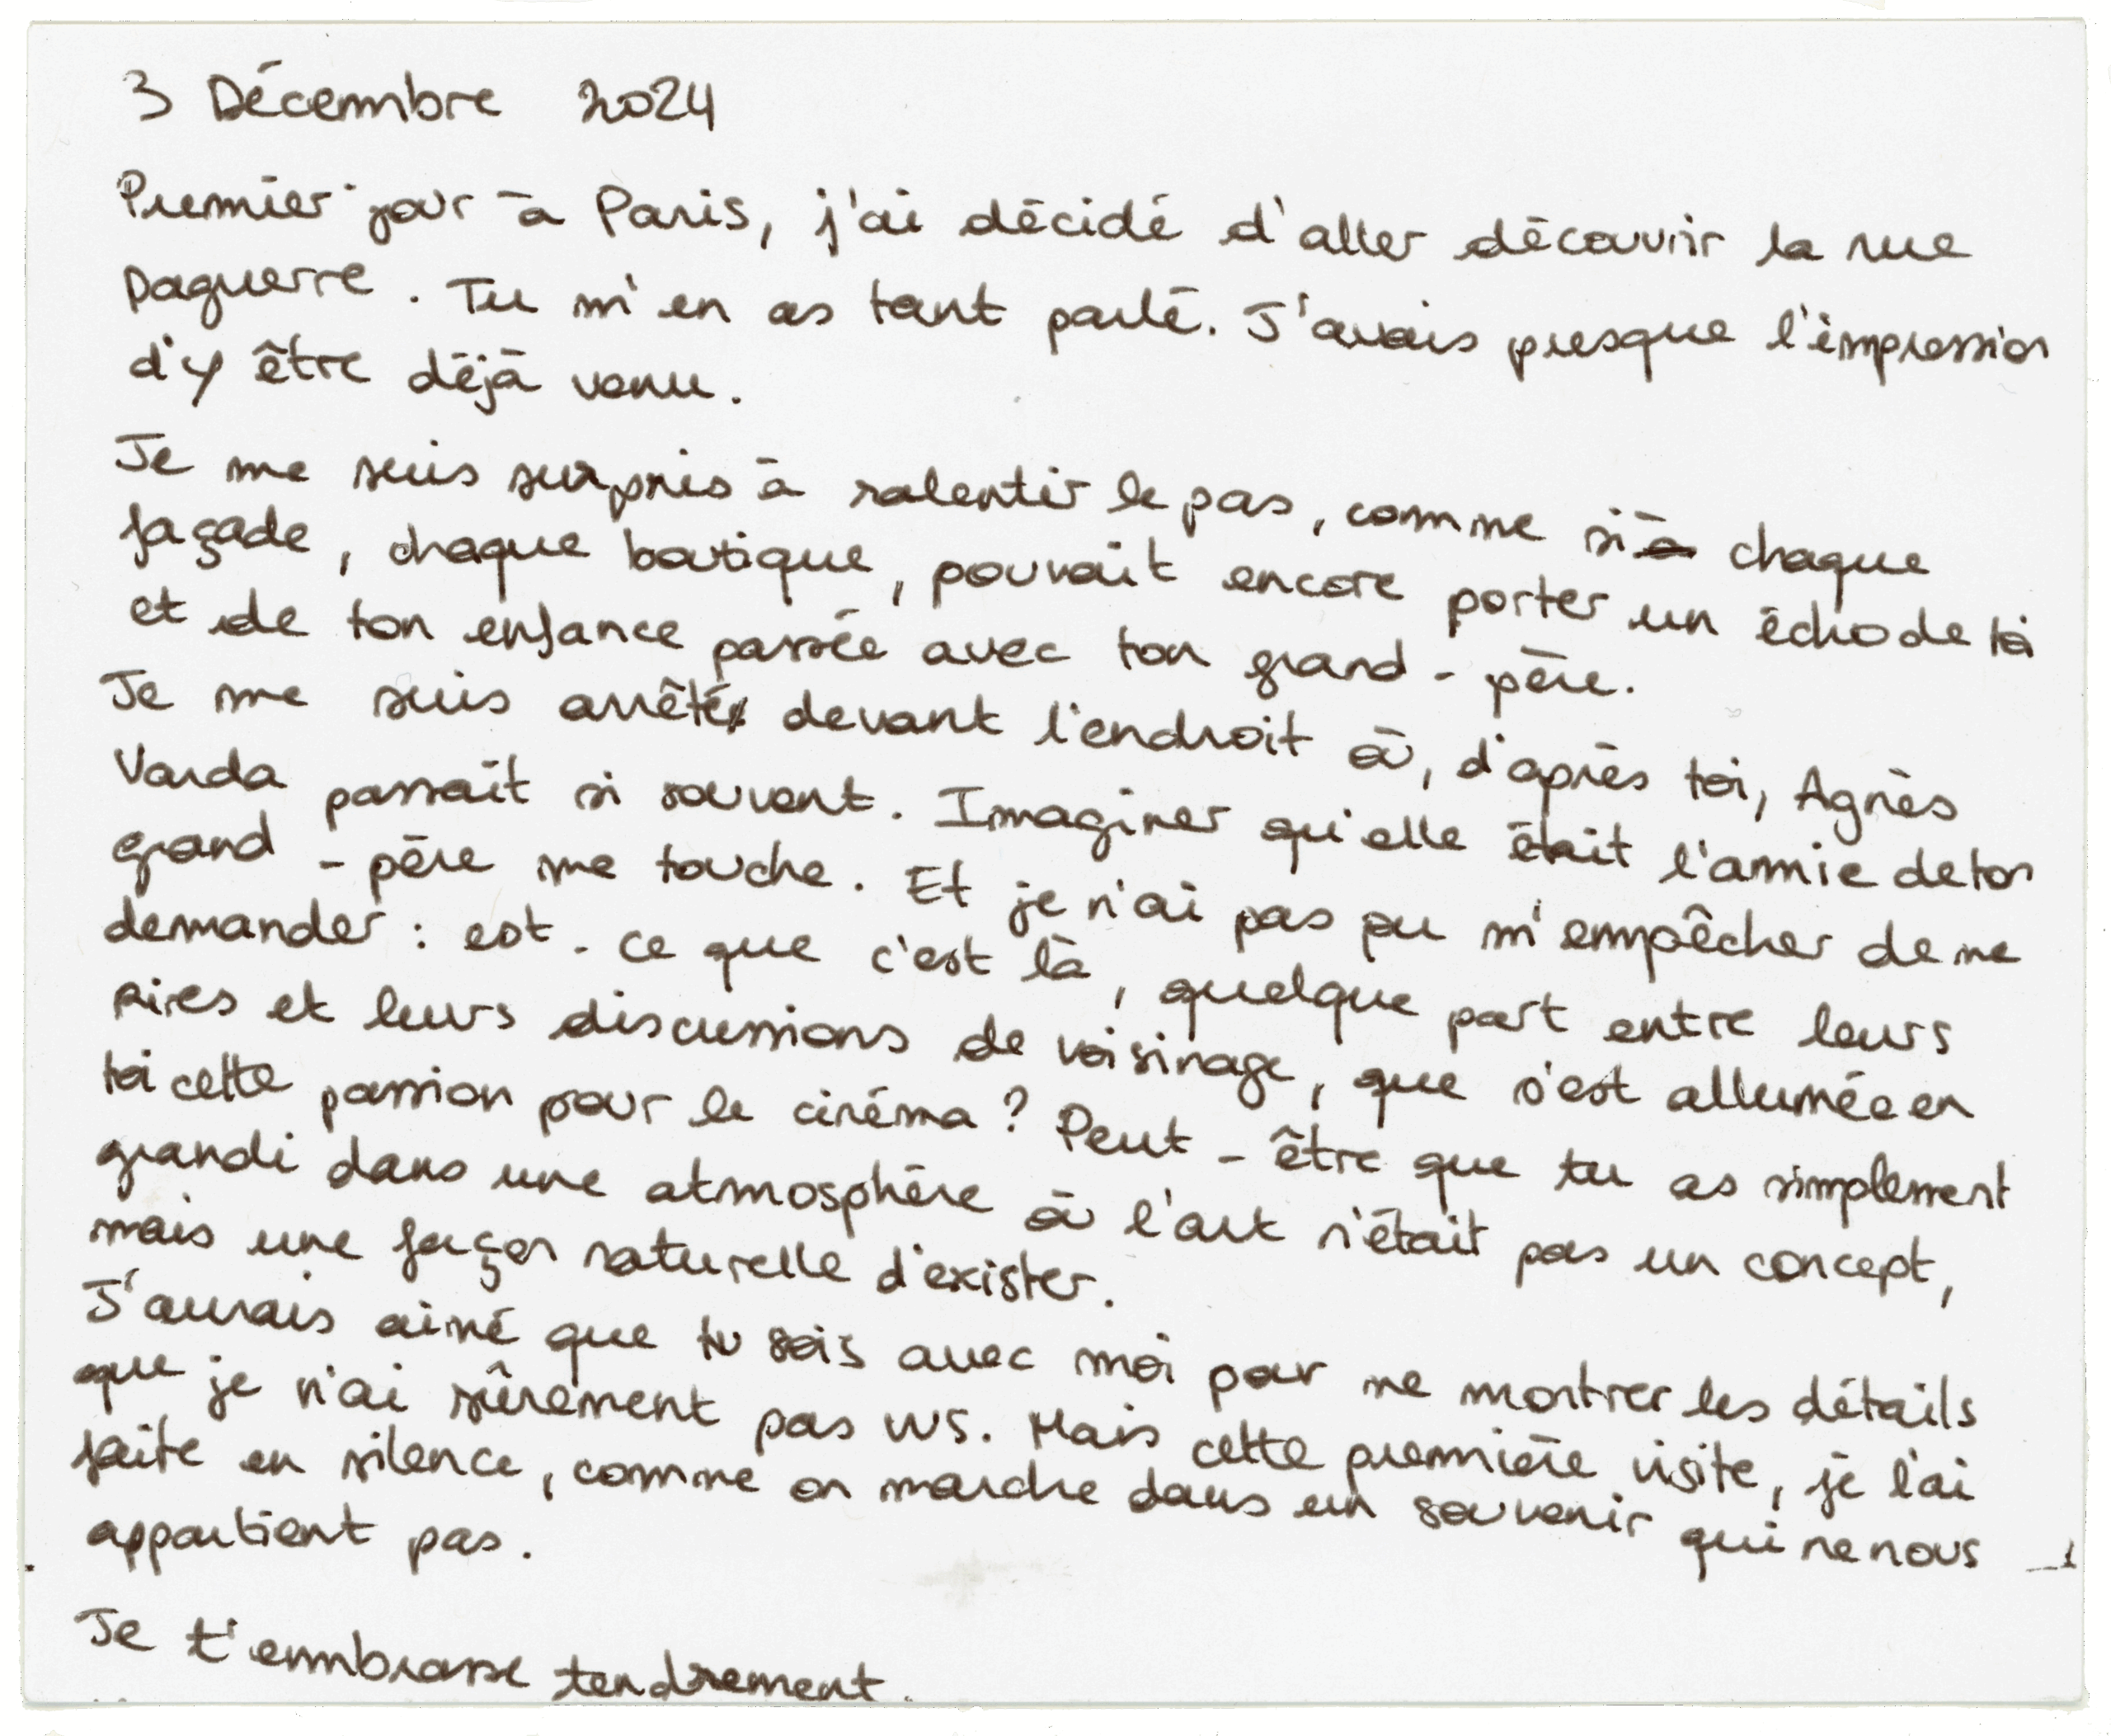 3 Décembre 2024
Premier jour à Paris, j'ai décidé d'aller découvrir la rue
Daguerre. Tu m'en as tant parlé. J'avais presque l'impression
d'y être déjà venu.
Je me suis surpris à ralentir le pas, comme si à chaque
façade, chaque boutique, pouvait encore porter un écho de toi
et de ton enfance passée avec ton grand-père.
Je me suis arrêté devant l'endroit où, d'après toi, Agnès
Varda passait si souvent. Imaginer qu'elle était l'amie de ton
grand-père me touche. Et je n'ai pas pu m'empêcher de me
demander : est-ce que c'est là, quelque part entre leurs
rires et leurs discussions de voisinage, que s'est allumée en
toi cette passion pour le cinéma ? Peut-être que tu as simplement
grandi dans une atmosphère où l'art n'était pas un concept,
mais une façon naturelle d'exister.
J'aurais aimé que tu sois avec moi pour me montrer les détails
que je n'ai sûrement pas vus. Mais cette première visite, je l'ai
faite en silence, comme on marche dans un souvenir qui ne nous
appartient pas.
Je t'embrasse tendrement.